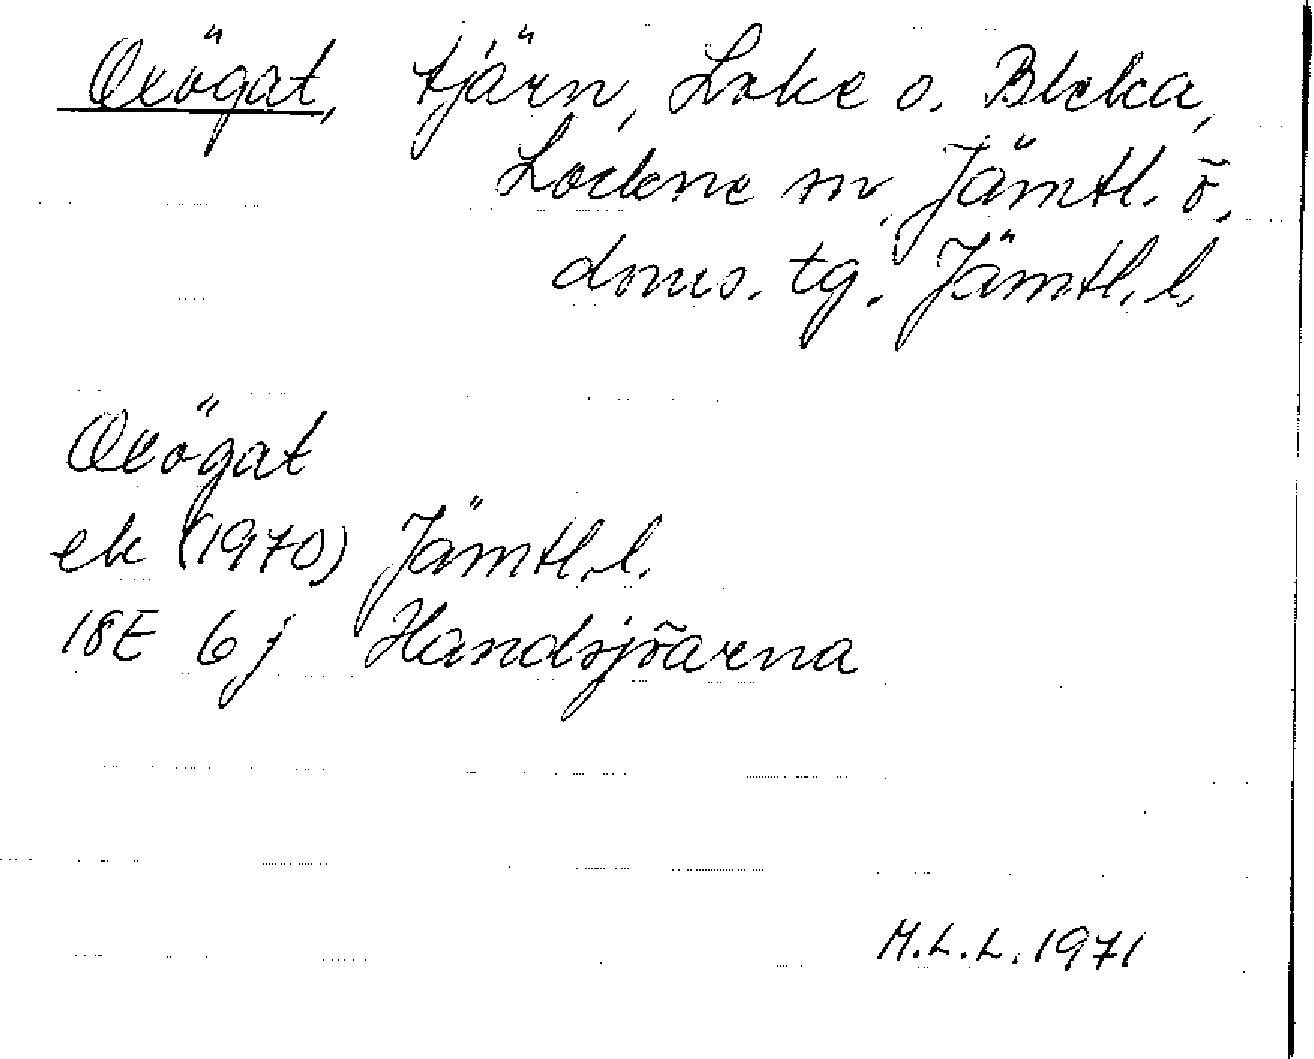 Oxögat, tjärn, Loke o. Bleka,
Lockne sn, Jämtl. ö.
doms. tg. Jämtl. l.
Oxögat
ek (1970) Jämtl. l.
18E 6j Handsjöarna
M.L.L. 1971